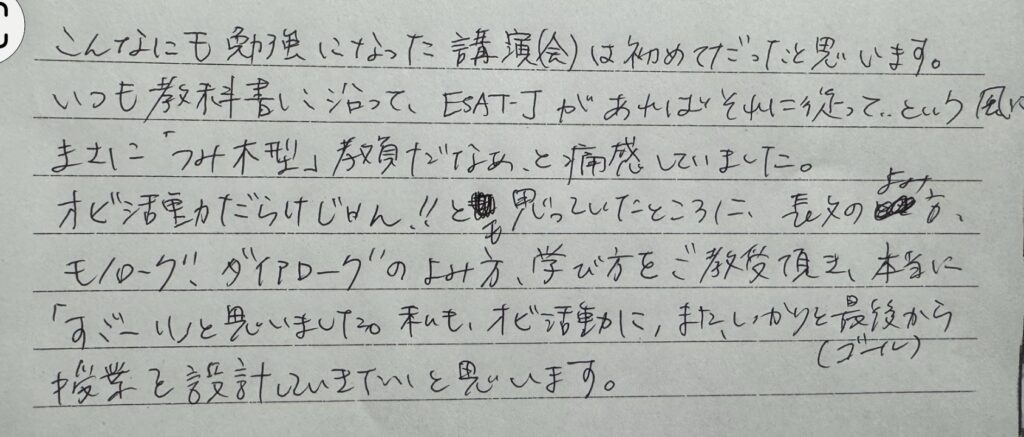 こんなにも勉強になった講演(会)は初めてだったと思います。
いつも教科書に沿って、ESAT-Jがあればそれに従って..という風に
まさに「つみ木型」教員だなぁ、と痛感していました。
オビ活動だらけじゃん!!とも思っていたところに、長文のよみ方、
モノローグ、ダイアローグのよみ方、学び方をご教授頂き、本当に
「すごーい」と思いました。私も、オビ活動に、また、しっかりと最後から
(ゴール)
授業を設計していきたいと思います。